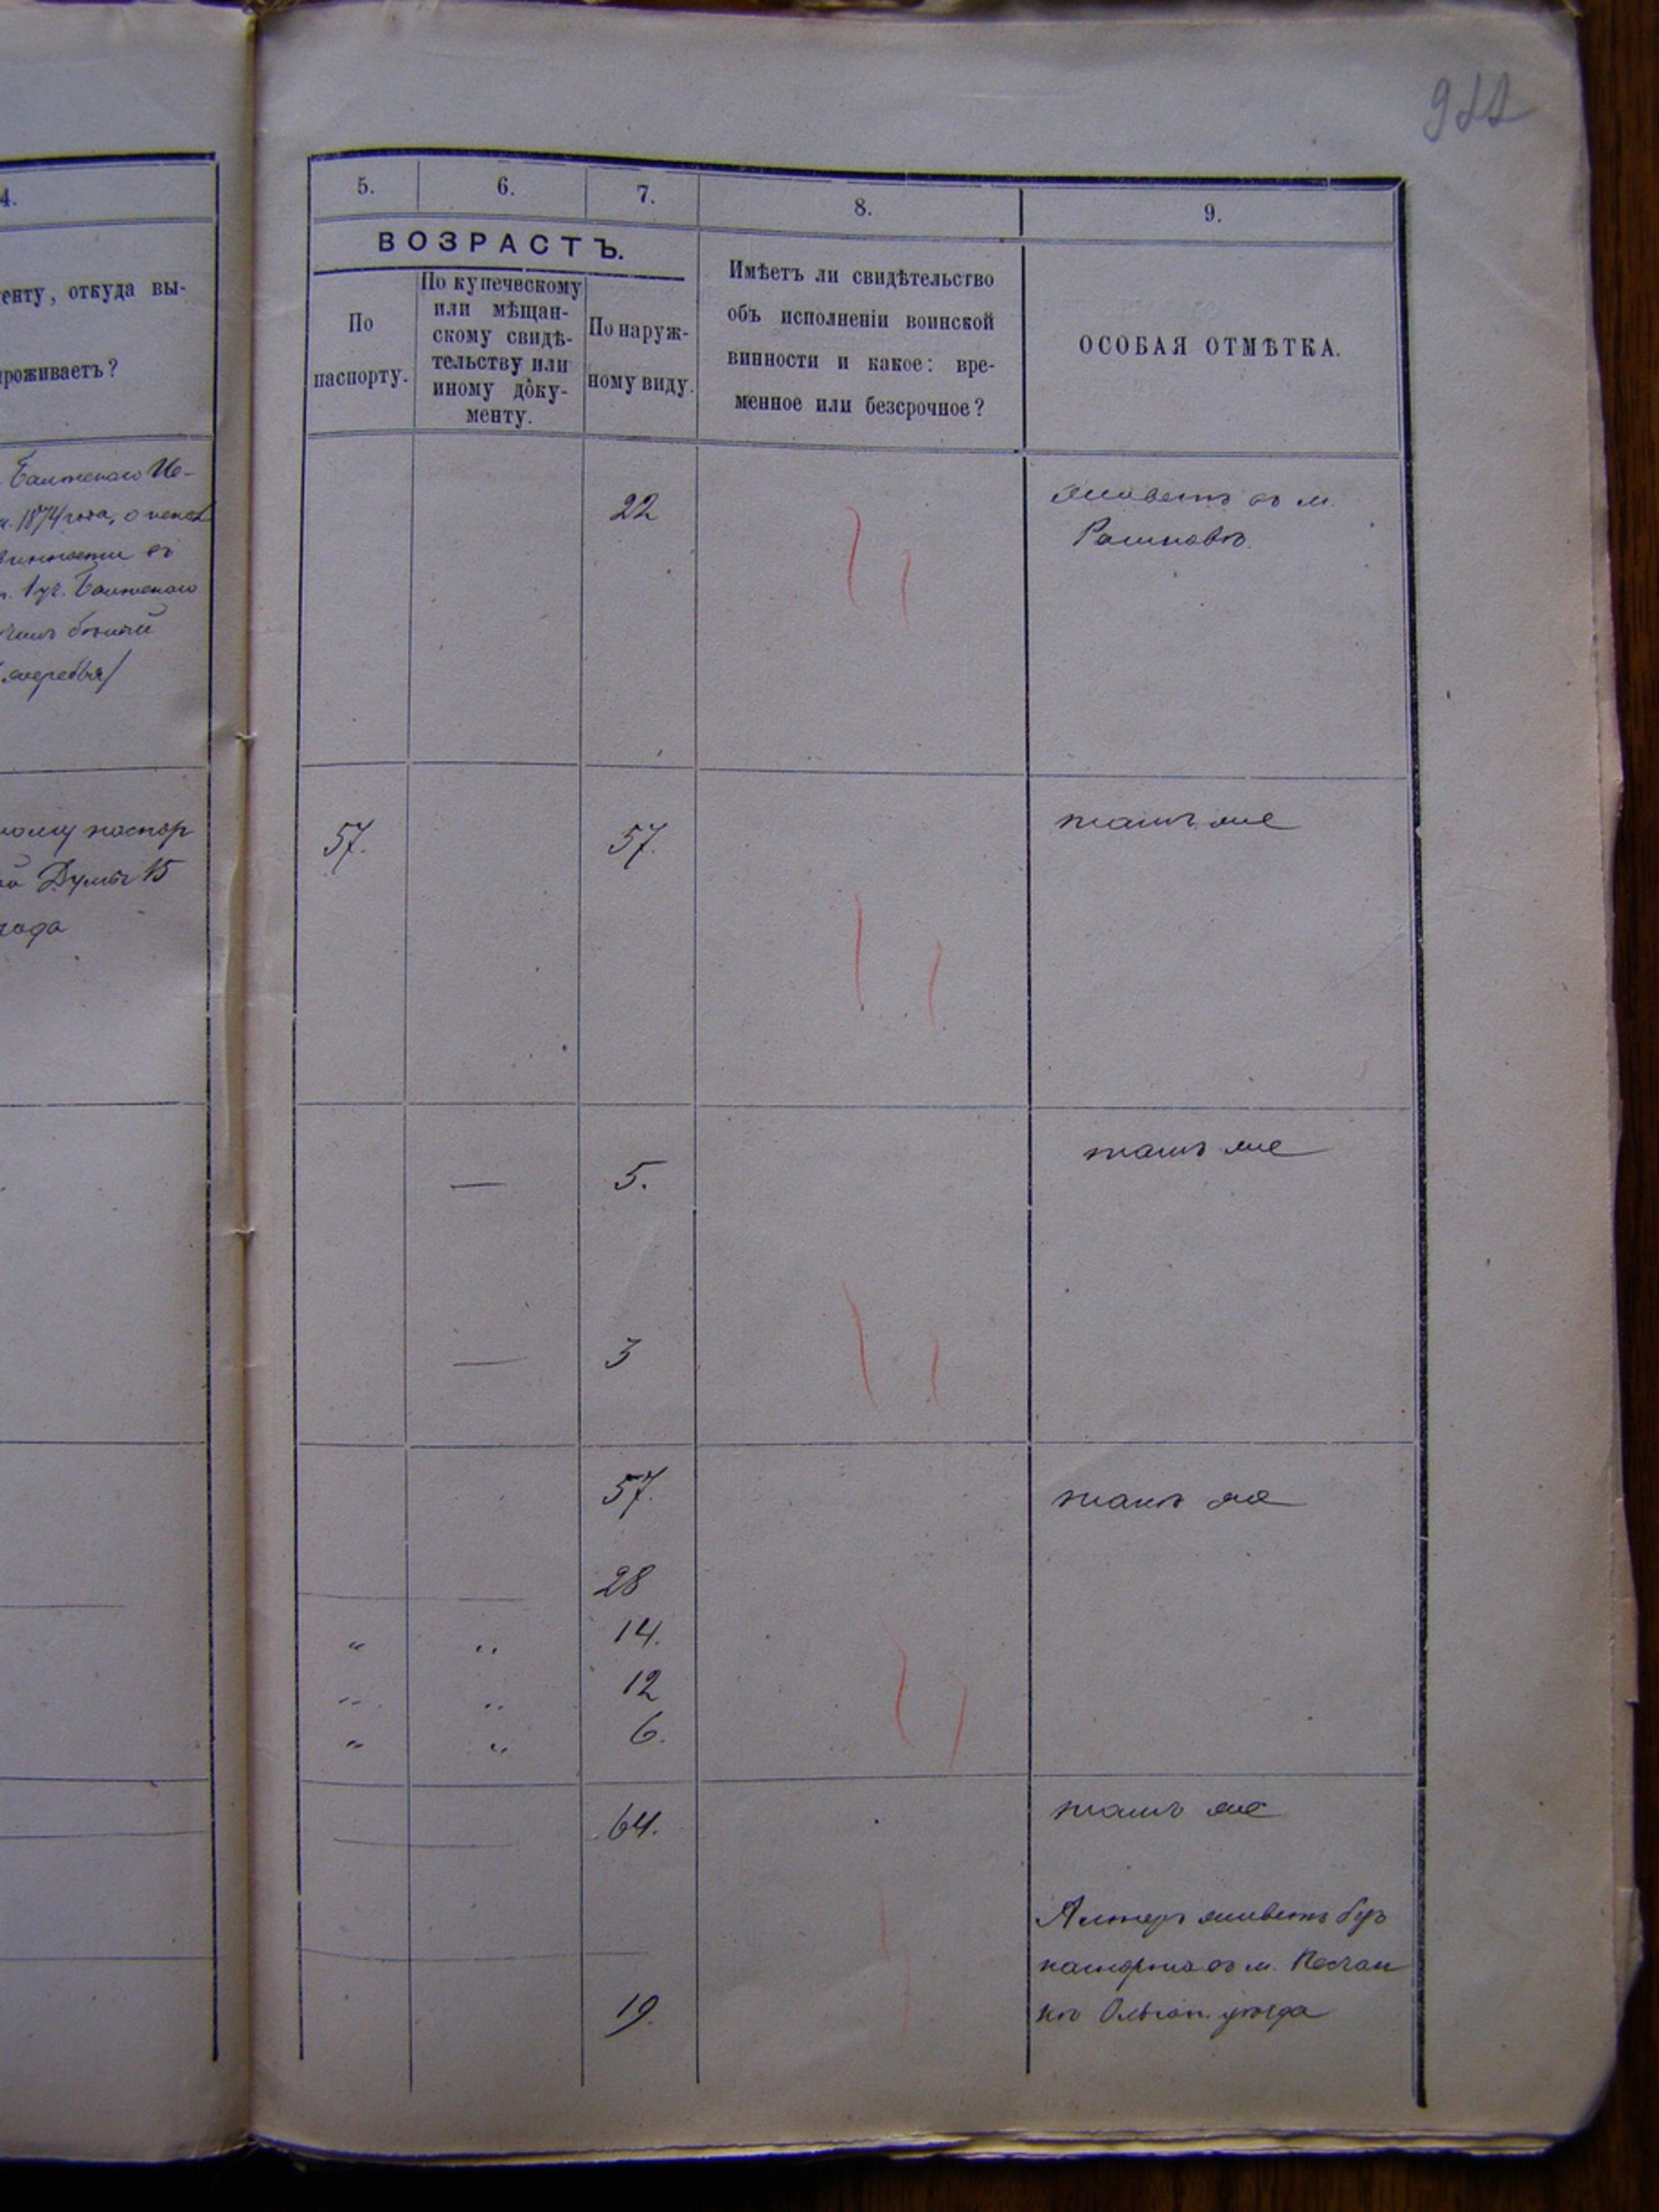 922
4.
енту, откуда вы-
проживаетъ?
Балтскаго Уе-
1874 года, о испол
винности въ
1 уч. Балтскаго
паспор
Думы 15
года
5.
6.
7.
8.
9.
ВОЗРАСТЪ.
По
паспорту.
По купеческому
или мѣщан-
скому свидѣ-
тельству или
иному доку-
менту.
По наруж-
ному виду.
Имѣетъ ли свидѣтельство
объ исполненіи воинской
винности и какое: вре-
менное или безсрочное?
ОСОБАЯ ОТМѢТКА.
22
живетъ въ м.
Рашковѣ.
57.
57.
тамъ же
—
5.
тамъ же
—
3
57.
тамъ же
28
" " 14.
" " 12
" " 6.
64.
тамъ же
19.
Алтеръ живетъ безъ
паспорта въ м. Песчан
кѣ Ольгоп. уѣзда